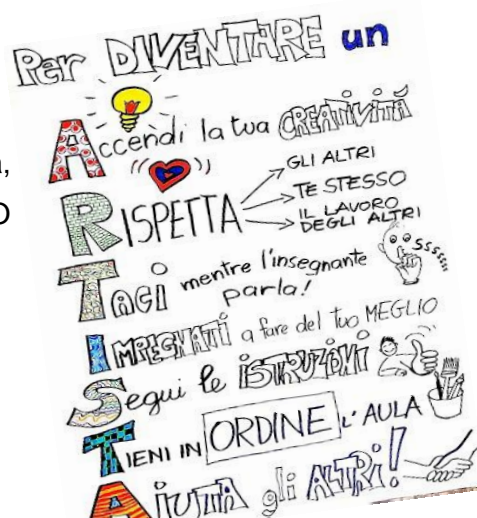 Per DIVENTARE un
Accendi la tua CREATIVITÀ
RISPETTA
GLI ALTRI
TE STESSO
IL LAVORO
DEGLI ALTRI
TACI mentre l'insegnante
parla!
SSSSSS
IMPEGNATI a fare del tuo MEGLIO
Segui le ISTRUZIONI
TIENI IN ORDINE L'AULA
AIUTA gli ALTRI!